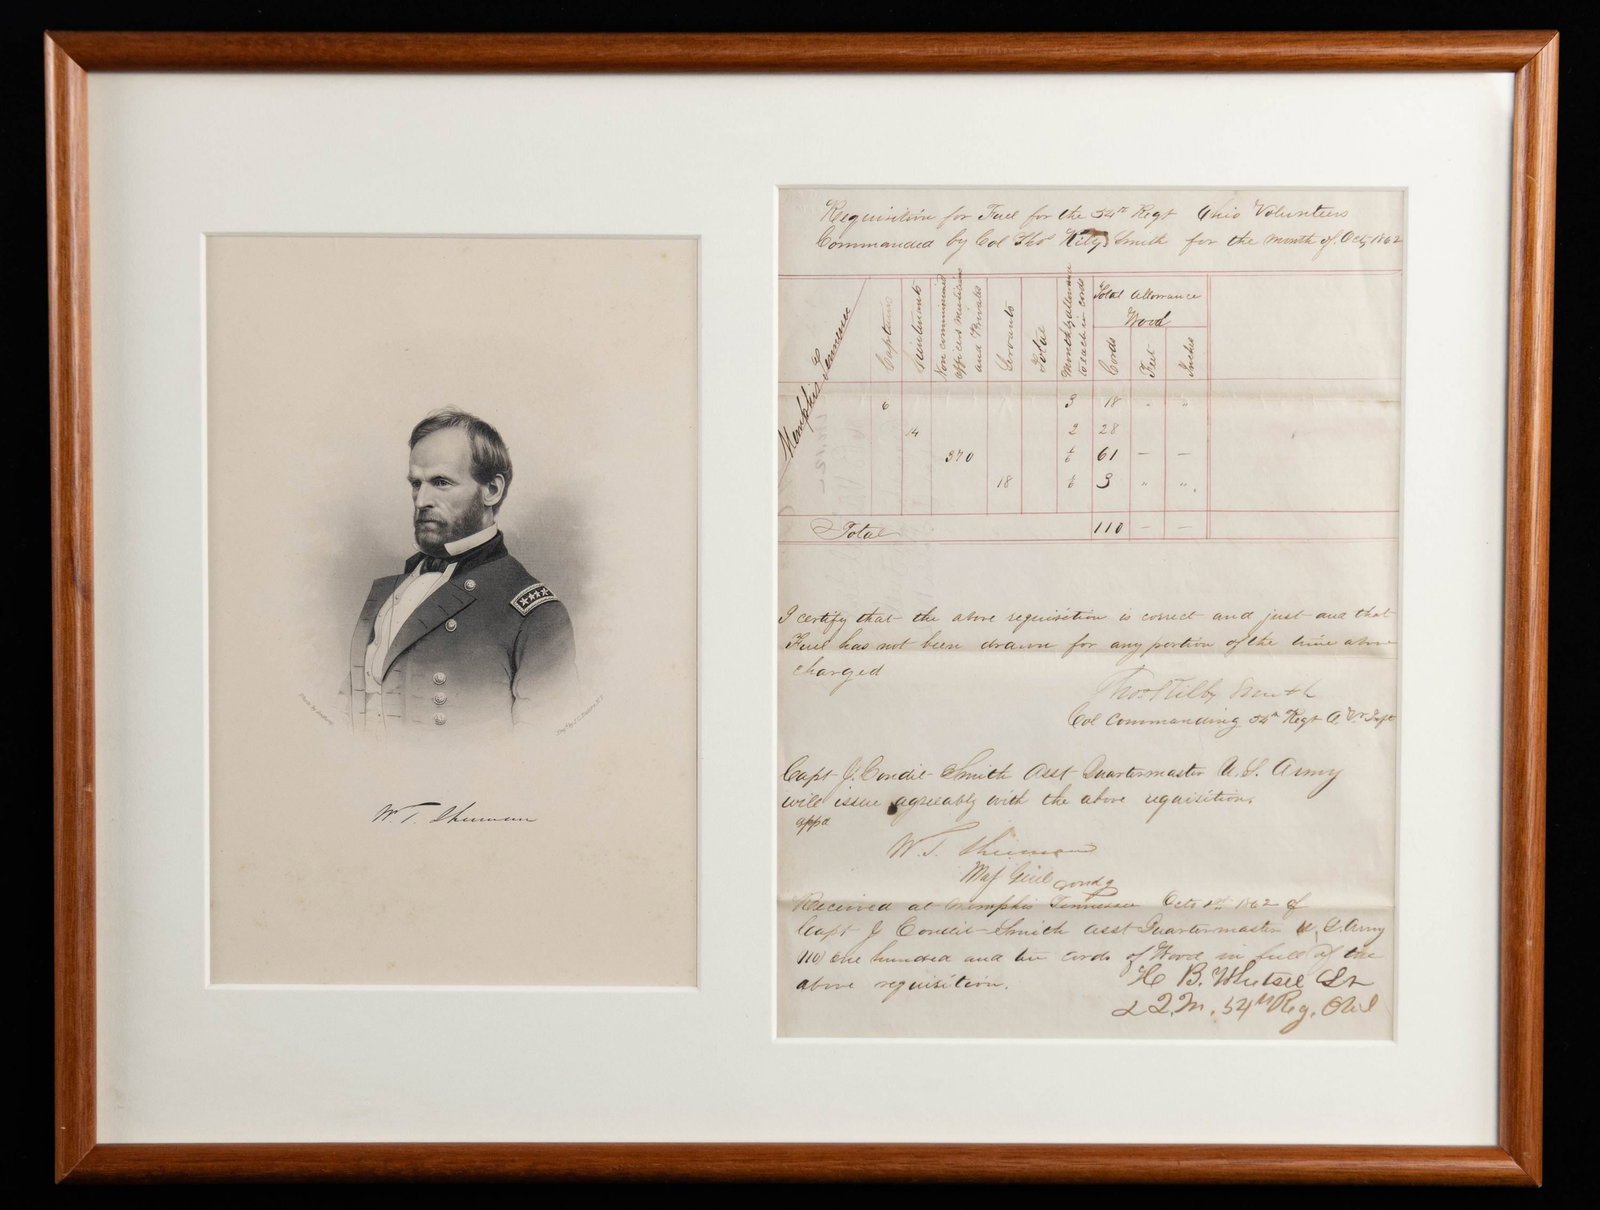 W. T. Sherman
Requisition for Fuel for the 54th Regt Ohio Volunteers
Commanded by Col Thos Kilby Smith for the month of Octr 1862
Memphis Tennessee
Captains
Lieutenants
Non commissioned
officers musicians
and Privates
Servants
Total
Monthly allowance
to each in cords
Total allowance
Wood
Cords
Feet
Inches
6 3 18 " "
14 2 28
370 1/6 61 — —
18 1/6 3 " "
Total 110 — —
I certify that the above requisition is correct and just and that
Fuel has not been drawn for any portion of the time above
charged
Thos Kilby Smith
Col Commanding 54th Regt O. V.
Capt J. Condit Smith Asst Quartermaster U. S. Army
will issue agreeably with the above requisition.
W. T. Sherman
Maj Genl Comdg
Received at Memphis Tennessee Octr 1st 1862 of
Capt J Condit Smith Asst Quartermaster U. S. Army
110 one hundred and ten cords of Wood in full of the
above requisition.
H B. Whetsel Lt
& Q.M. 54th Reg.